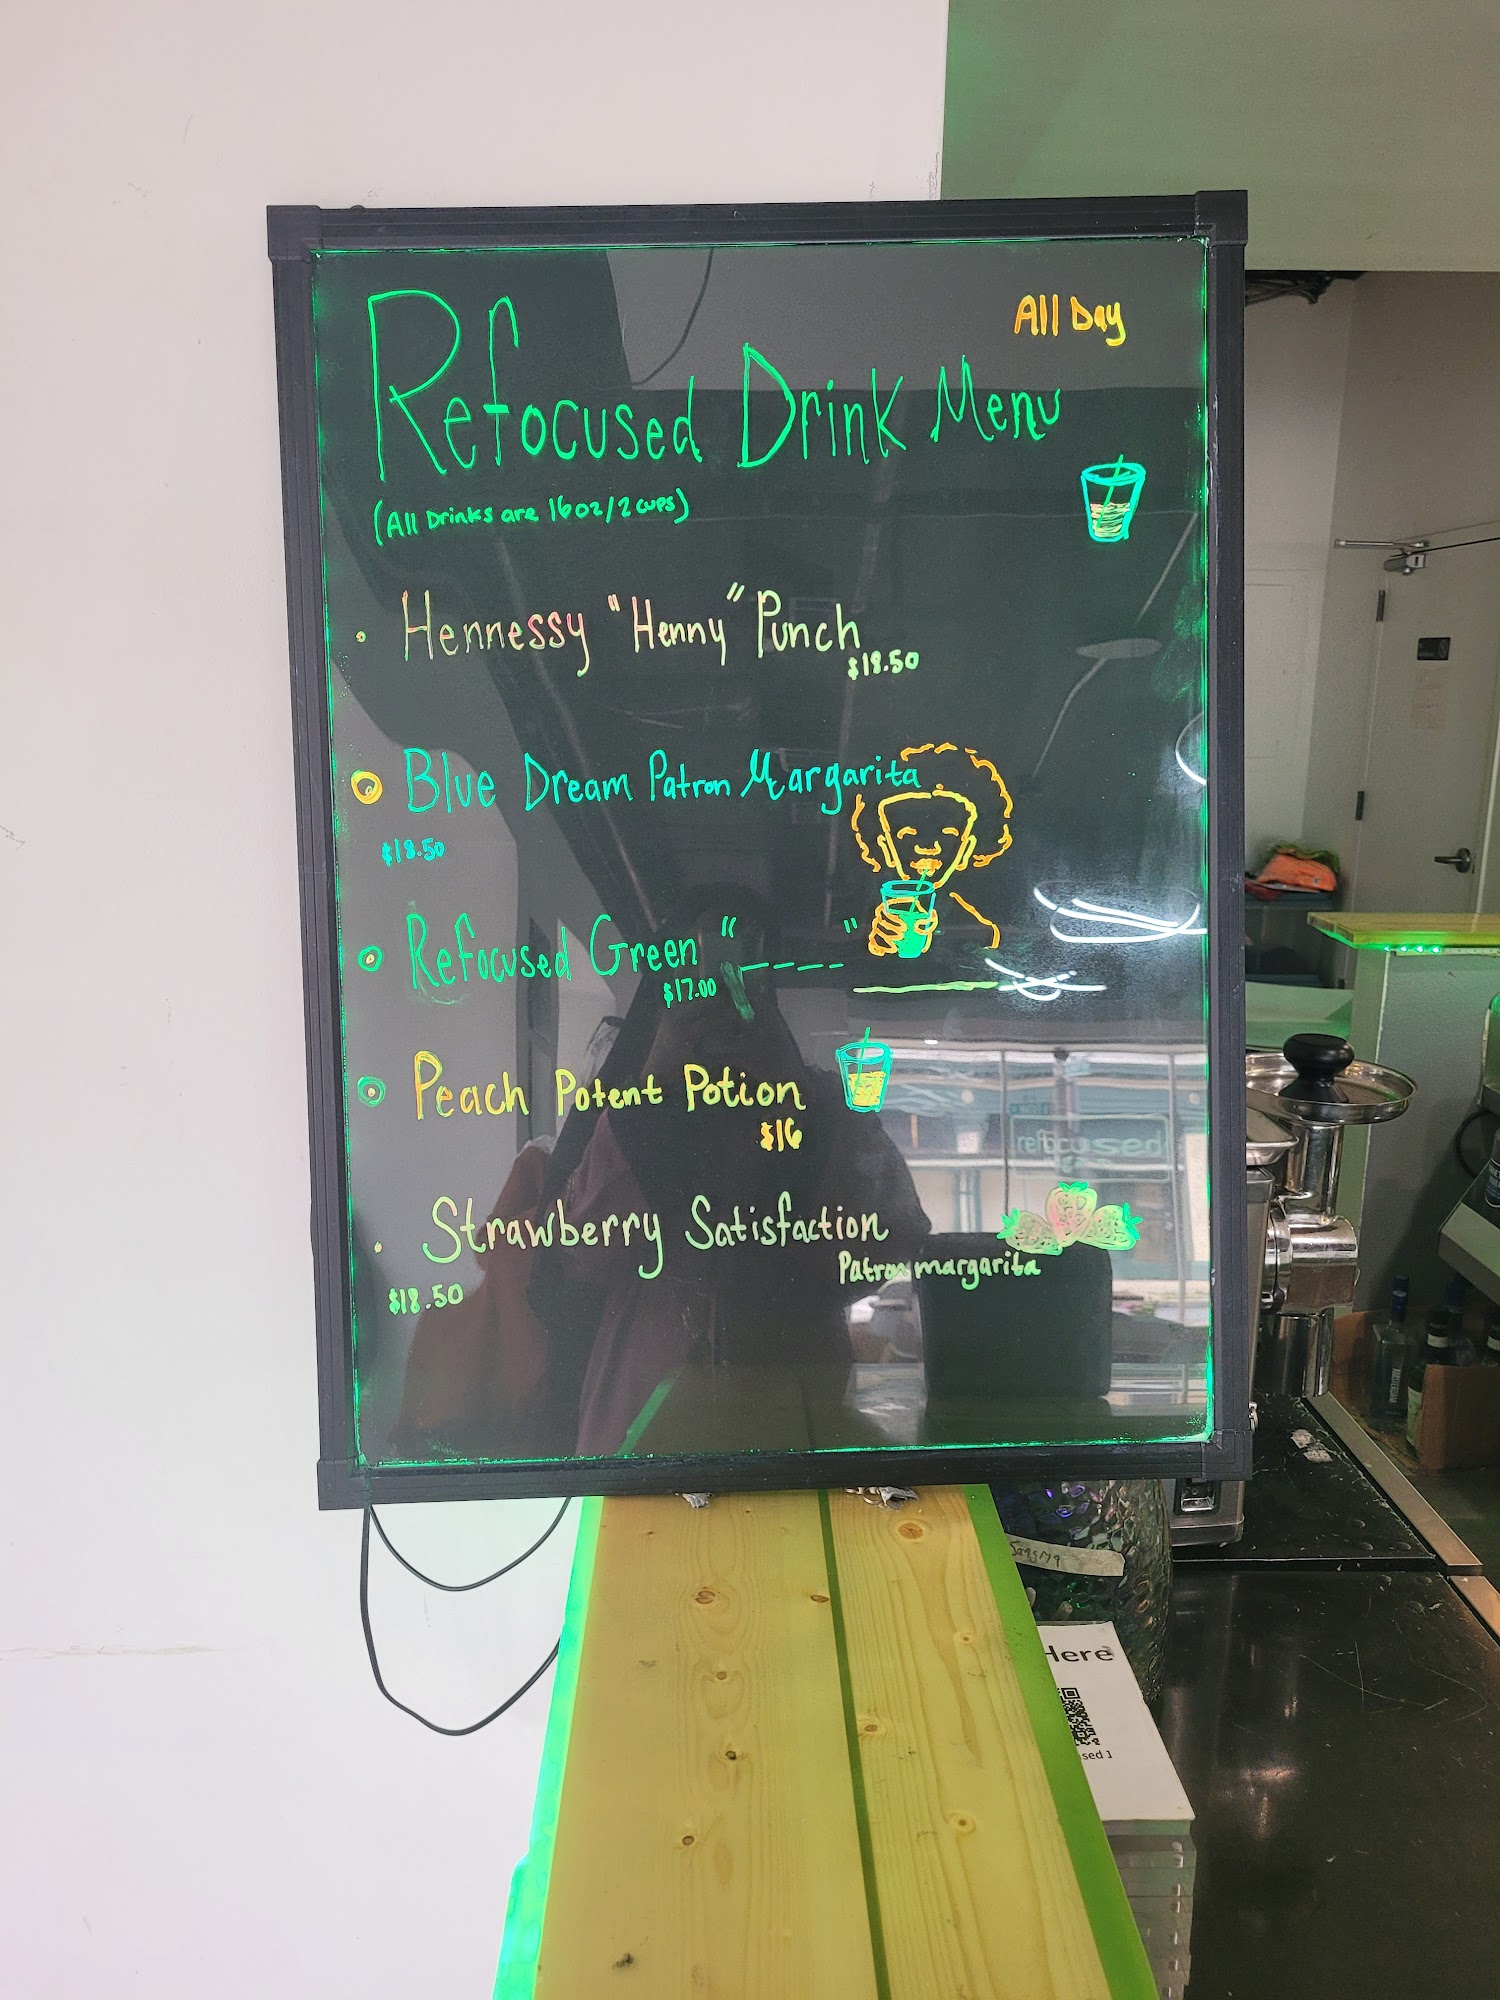 All Day
Refocused Drink Menu
(All Drinks are 16oz/2cups)
Hennessy "Henny" Punch
$18.50
Blue Dream Patron Margarita
$18.50
Refocused Green "_ _ _ _ _"
$17.00
Peach Potent Potion
$16
Strawberry Satisfaction
Patron margarita
$18.50
refocused
Here
sed 1